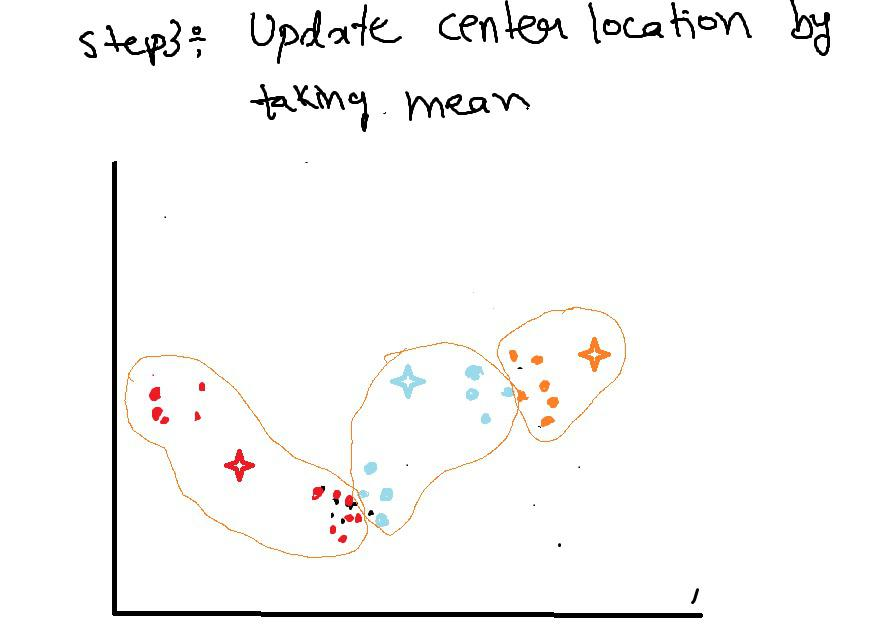 step3: Update center location by
taking mean